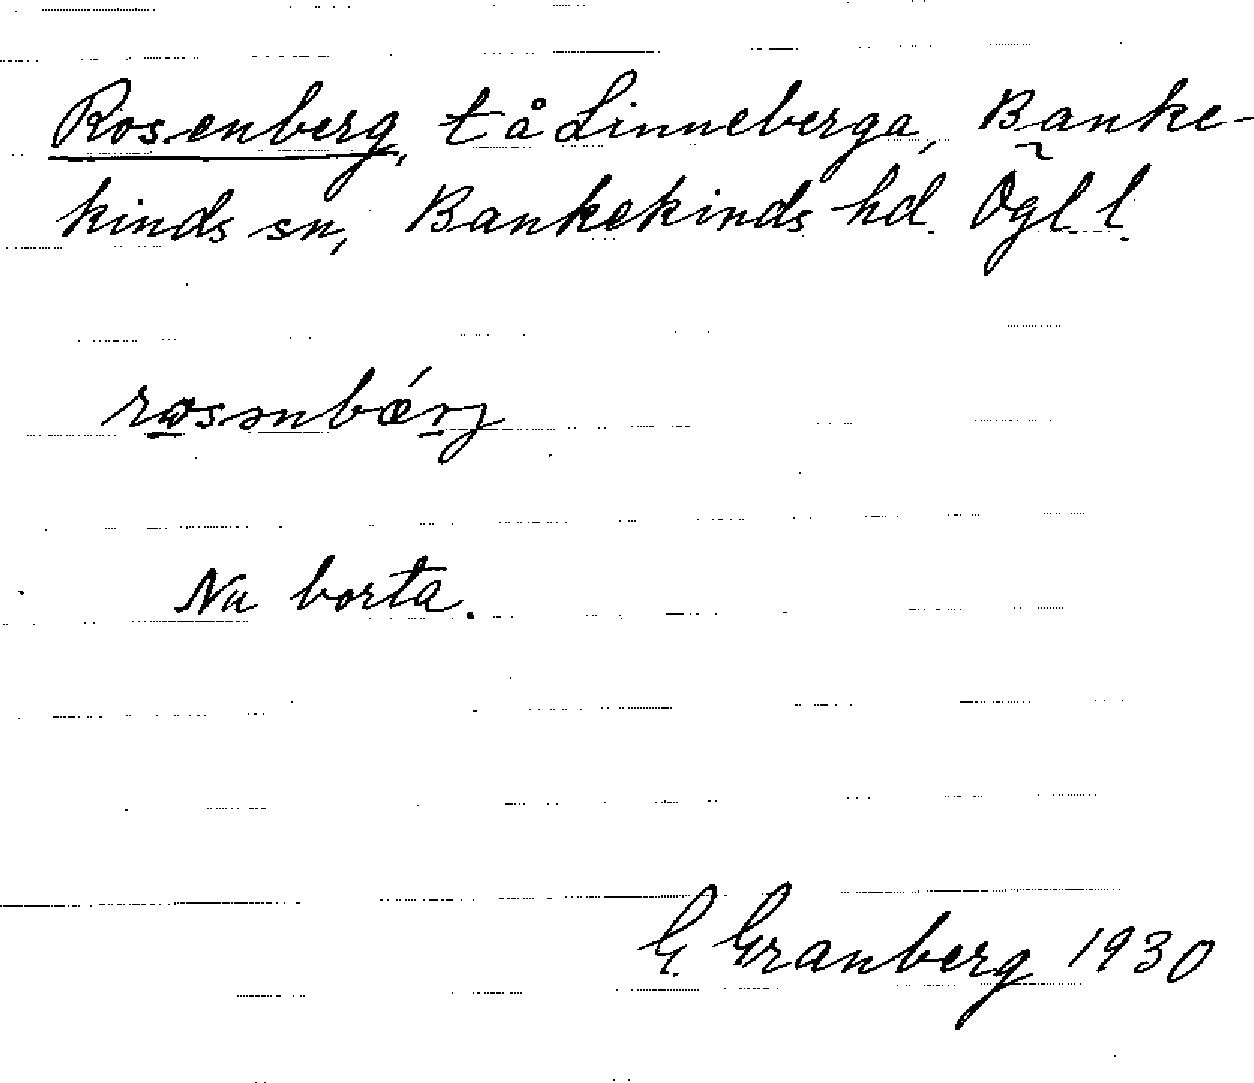 Rosenberg, t å Linneberga, Banke-
kinds sn, Bankekinds hd. Ögl l.
rosənbǽrj
Nu borta.
G. Granberg 1930